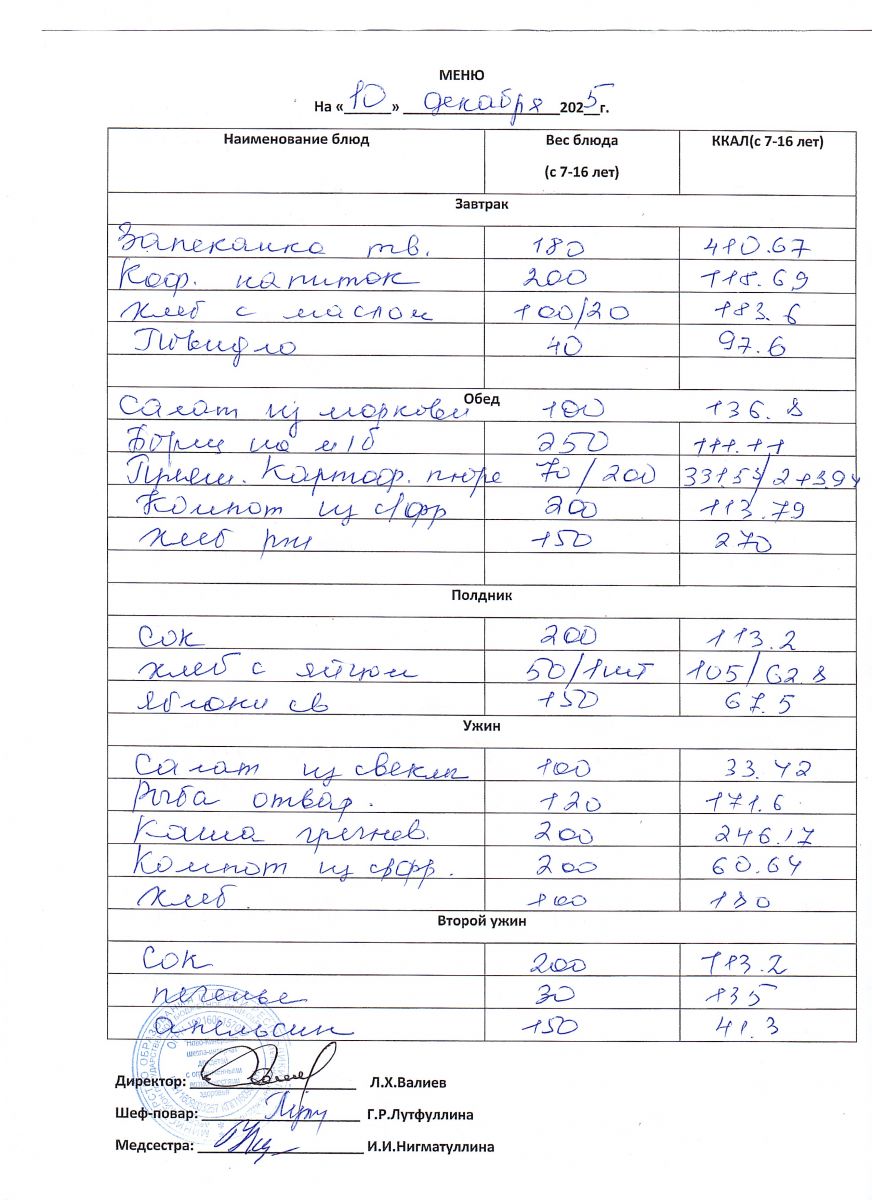 МЕНЮ
На «10» декабря 2025г.
Наименование блюд Вес блюда (с 7-16 лет) ККАЛ(с 7-16 лет)
Завтрак
Запеканка тв. 180 410.67
Коф. напиток 200 118.69
Хлеб с маслом 100/20 183.6
Повидло 40 97.6
Обед
Салат из моркови 100 136.8
Борщ на м/б 250 111.11
Картоф. пюре 70/200
Компот из с/фр 200 113.79
Хлеб рж 150 270
Полдник
Сок 200 113.2
хлеб с яйцом 50/1шт 105/62.8
яблоки св 150 67.5
Ужин
Салат из свеклы 100 33.42
Рыба отвар. 120 171.6
Каша гречнев. 200 246.17
Компот из с/фр. 200 60.64
Хлеб. 100 180
Второй ужин
Сок 200 113.2
печенье 30 135
апельсин 150 41.3
Директор: Л.Х.Валиев
Шеф-повар: Г.Р.Лутфуллина
Медсестра: И.И.Нигматуллина